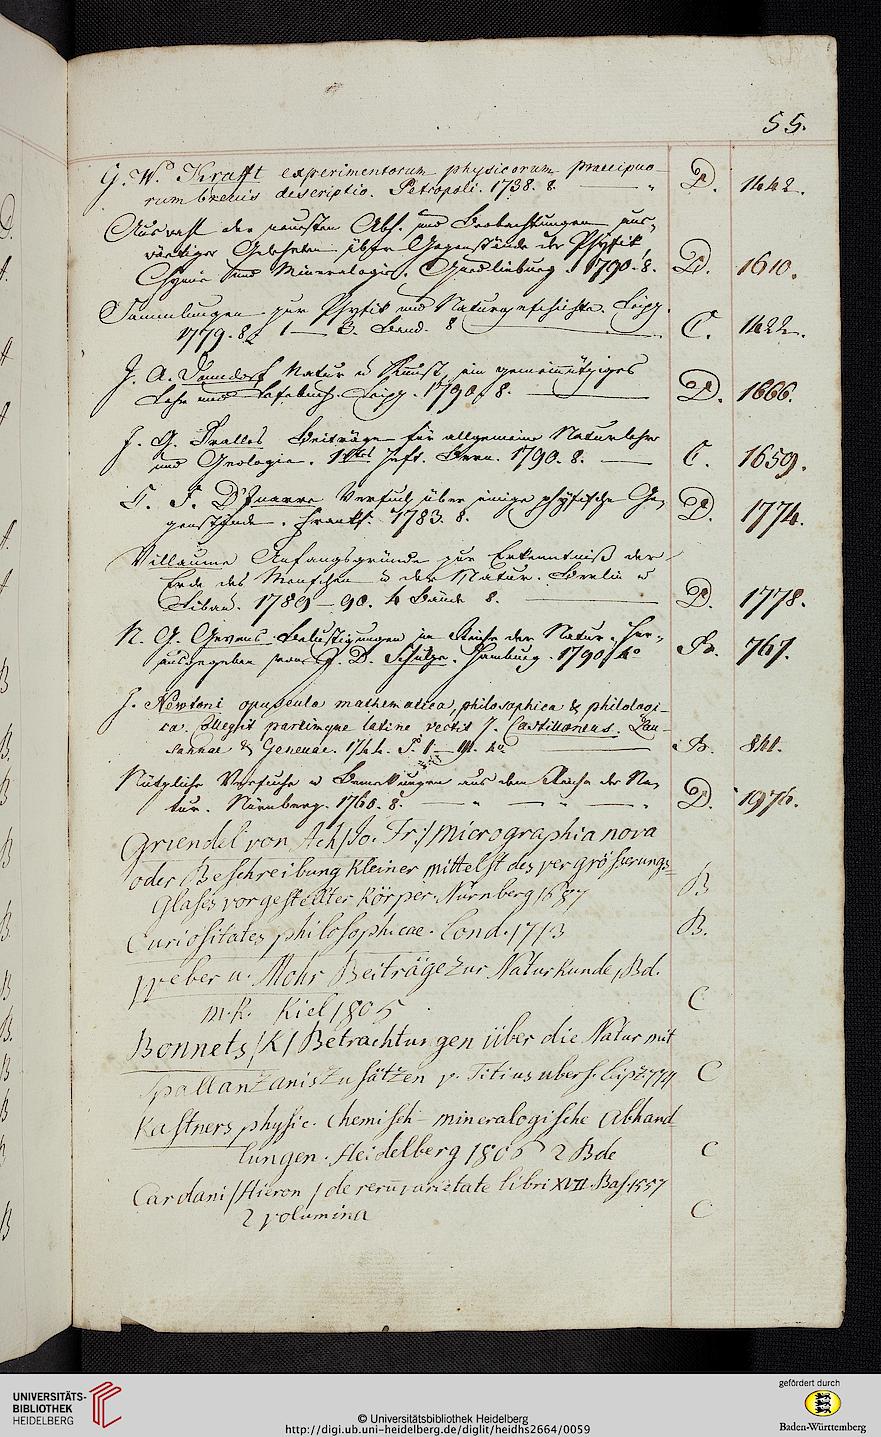 55.
G. W. Krafft experimentorum physicorum praecipuo-
rum brevis descriptio. Petropoli. 1738. 8. — " D. 1442.
Auswahl der neuesten Abh. und Beobachtungen aus-
wärtiger Gelehrten über Gegenstände der Physik,
Chymie und Mineralogie. Quedlinburg. 1790. 8. D. 1610.
Sammlungen zur Physik und Naturgeschichte. Leipz.
1779. 8. 1 — 3. Band. 8 C. 1422.
J. A. Donndorf Natur u Kunst, ein gemeinnütziges
Lehr und Lesebuch. Leipz. 1790. 8. — D. 1666.
J. G. Tralles Beiträge für allgemeine Naturlehre
und Geologie. 1tes Heft. Bern. 1790. 8. — C. 1659.
Versuch über einige physische Ge-
genstände. Frankf. 1783. 8. D. 1774.
Villaume Anfangsgründe zur Erkenntniß der
Erde des Menschen u der Natur. Berlin u
Libau. 1789–90. 4 Bände 8. — D. 1778.
N. G. Gevens Belustigungen im Reiche der Natur. Her-
ausgegeben von J. D. Schulze. Hamburg. 1790. 4o B. 767.
J. Newtoni opuscula mathematica, philosophica & philologi-
ca. Collegit partimque latine vertit J. Castillioneus. Lau-
sannae & Genevae. 1744. T. 1 — 4o — B. 841.
Nützliche Versuche u Bemerkungen aus dem Reiche der Na-
tur. Nürnberg. 1760. 8. — " — " — D. 1976.
Griendel von Ach /Jo. Fr:/ Micrographia nova
oder Beschreibung kleiner mittelst des vergrösserungs=
Glases vorgestellter Körper. Nürnberg 1687 B
Curiositates philosophicae. Lond. 1713 B.
Weber u. Mohr Beiträge zur Naturkunde, Bd.
m. K. Kiel 1805 C
Bonnets /K/ Betrachtungen über die Natur mit
Spallanzanis Zusätzen v. Titius übers. Leipz. 774 C
Kastners physic. chemisch mineralogische Abhand
lungen. Heidelberg 1806 2 Bde C
Cardani /Hieron/ de rerū varietate libri XVII. Bas. 1557
2 volumina C
UNIVERSITÄTS-
BIBLIOTHEK
HEIDELBERG
© Universitätsbibliothek Heidelberg
http://digi.ub.uni-heidelberg.de/diglit/heidhs2664/0059
gefördert durch
Baden-Württemberg